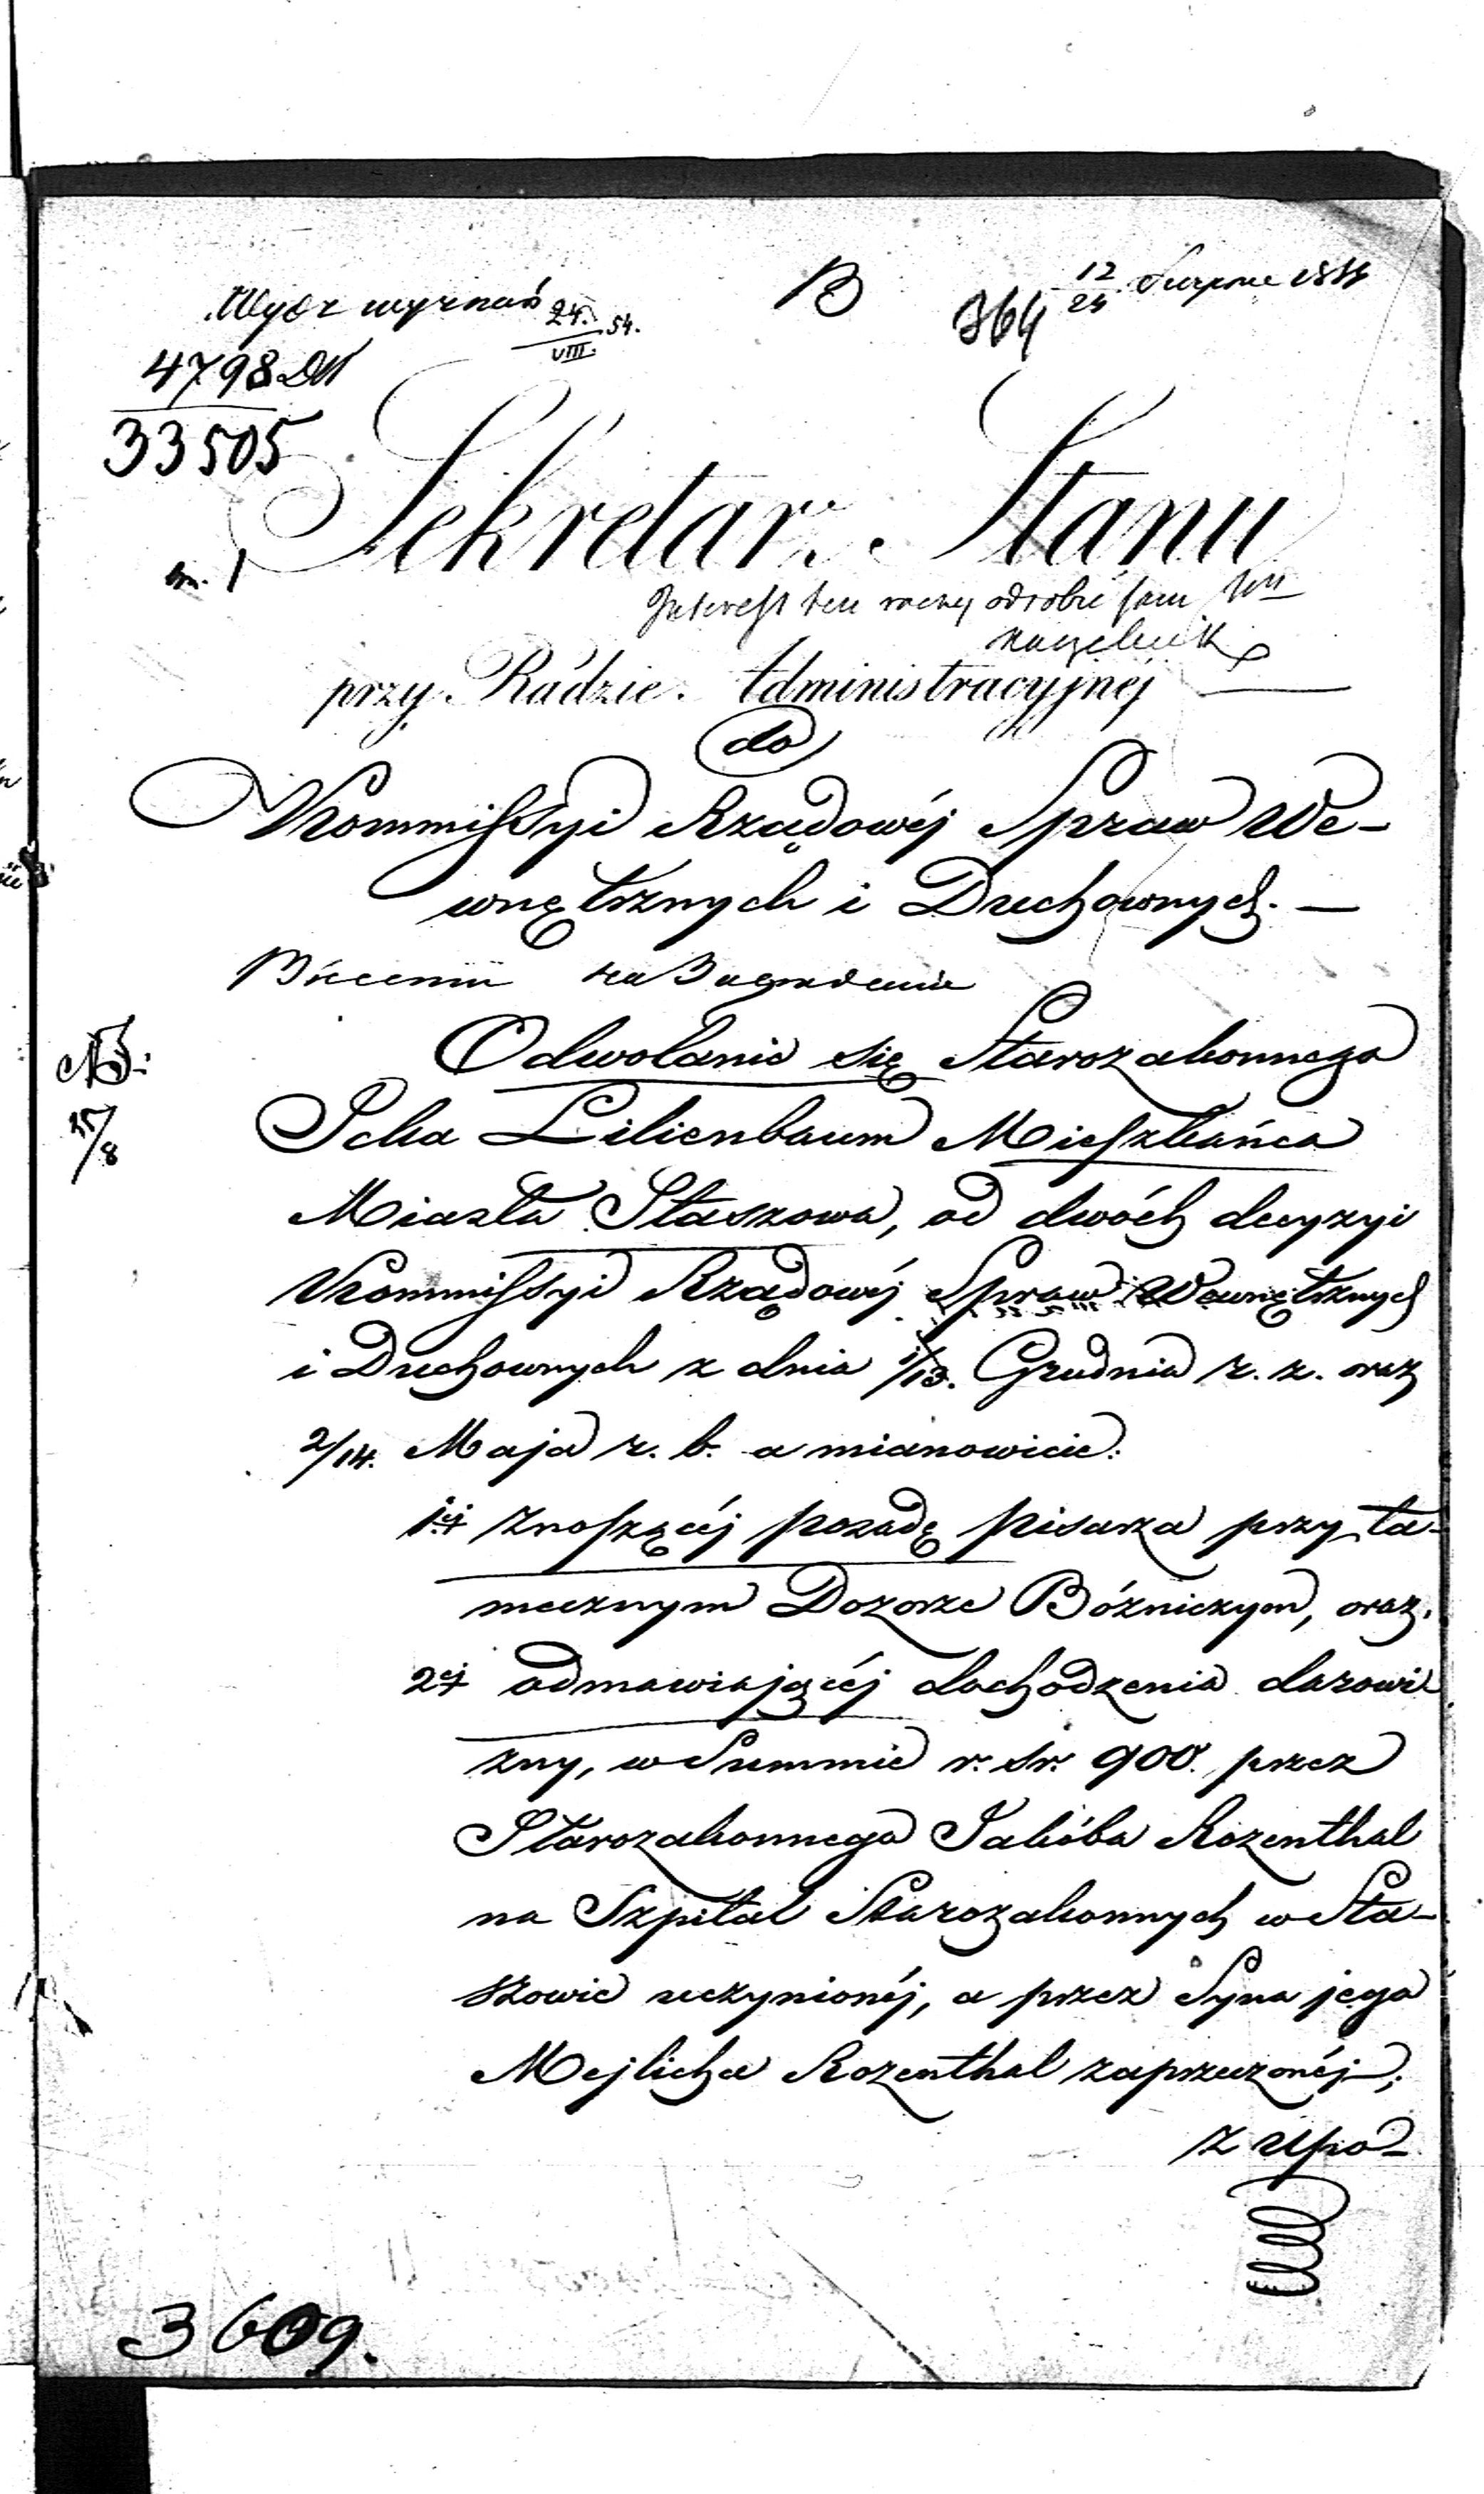 Wydz wyznań 24./VIII. 54.
B
364
12/24 Sierpnia 1854
4798
33505
Sekretarz Stanu
Interess ten raczy odrobić sam
Naczelnik
przy Radzie Administracyjnéj
do
Kommissyi Rządowéj Spraw We-
wnętrznych i Duchownych. —
Odwołanie się Starozakonnego
Icka Lilienbaum Mieszkańca
Miasta Staszowa, od dwóch decyzyi
Kommissyi Rządowéj Spraw Wewnętrznych
i Duchownych z dnia 1/13. Grudnia r. z. oraz
2/14. Maja r. b. a mianowicie:
1ej znoszącéj posadę pisarza przy ta-
mecznym Dozorze Bóżniczym, oraz.
2ej odmawiającéj dochodzenia darowi-
zny, w Summie r. sr. 900. przez
Starozakonnego Jakóba Rozenthal
na Szpital Starozakonnych w Sta-
szowie uczynionéj, a przez Syna jego
Mejlicha Rozenthal zaprzeczonéj;
z upo-
25/8
3609.